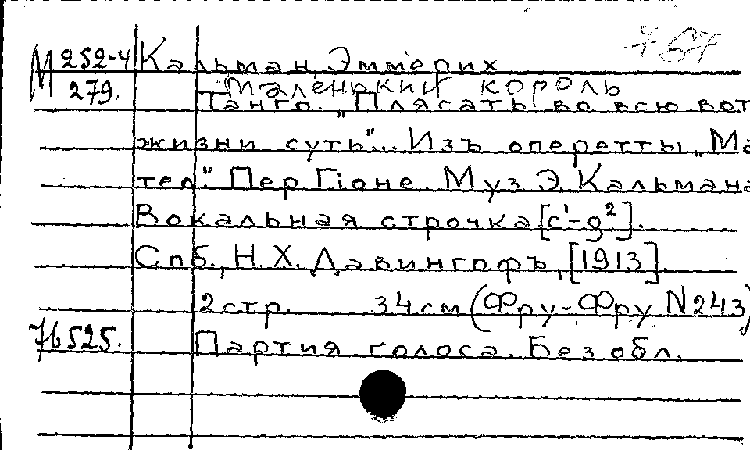 М 252-4 Кальман, Эммерих 767
"Маленький король
279. Танго. „Плясать во всю вот
жизни суть"... Изъ оперетты „Ма
тел." Пер. Гіоне. Муз. Э. Кальмана
Вокальная строчка [c¹-g²].
Спб., Н. Х. Давингофъ, [1913]
2 стр. 34 см (Фру-Фру N 243)
76525. Партия голоса. Без обл.